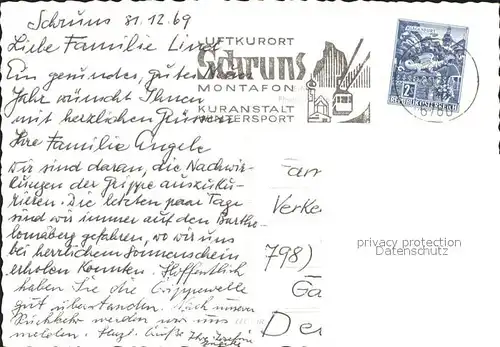 Schruns 31.12.69
Liebe Familie Lind
Ein gesundes, gutes
Jahr wünscht Ihnen
mit herzlichen Grüssen
Ihre Familie Angele
Wir sind daran, die Nachwir-
kungen der Grippe auszuku-
rieren. Die letzten paar Tage
sind wir immer auf den Barthe-
lomäberg gefahren, wo wir uns
bei herrlichem Sonnenschein
erholen konnten. Hoffentlich
haben Sie die Grippewelle
gut überstanden. Nach unserer
Rückkehr werden wir uns
melden. Herzl. Grüße Ihre
LUFTKURORT
Schruns
MONTAFON
KURANSTALT
WINTERSPORT
2
REPUBLIK ÖSTERREICH
6780
Fam
Verke
798)
Ga
De
privacy protection
Datenschutz